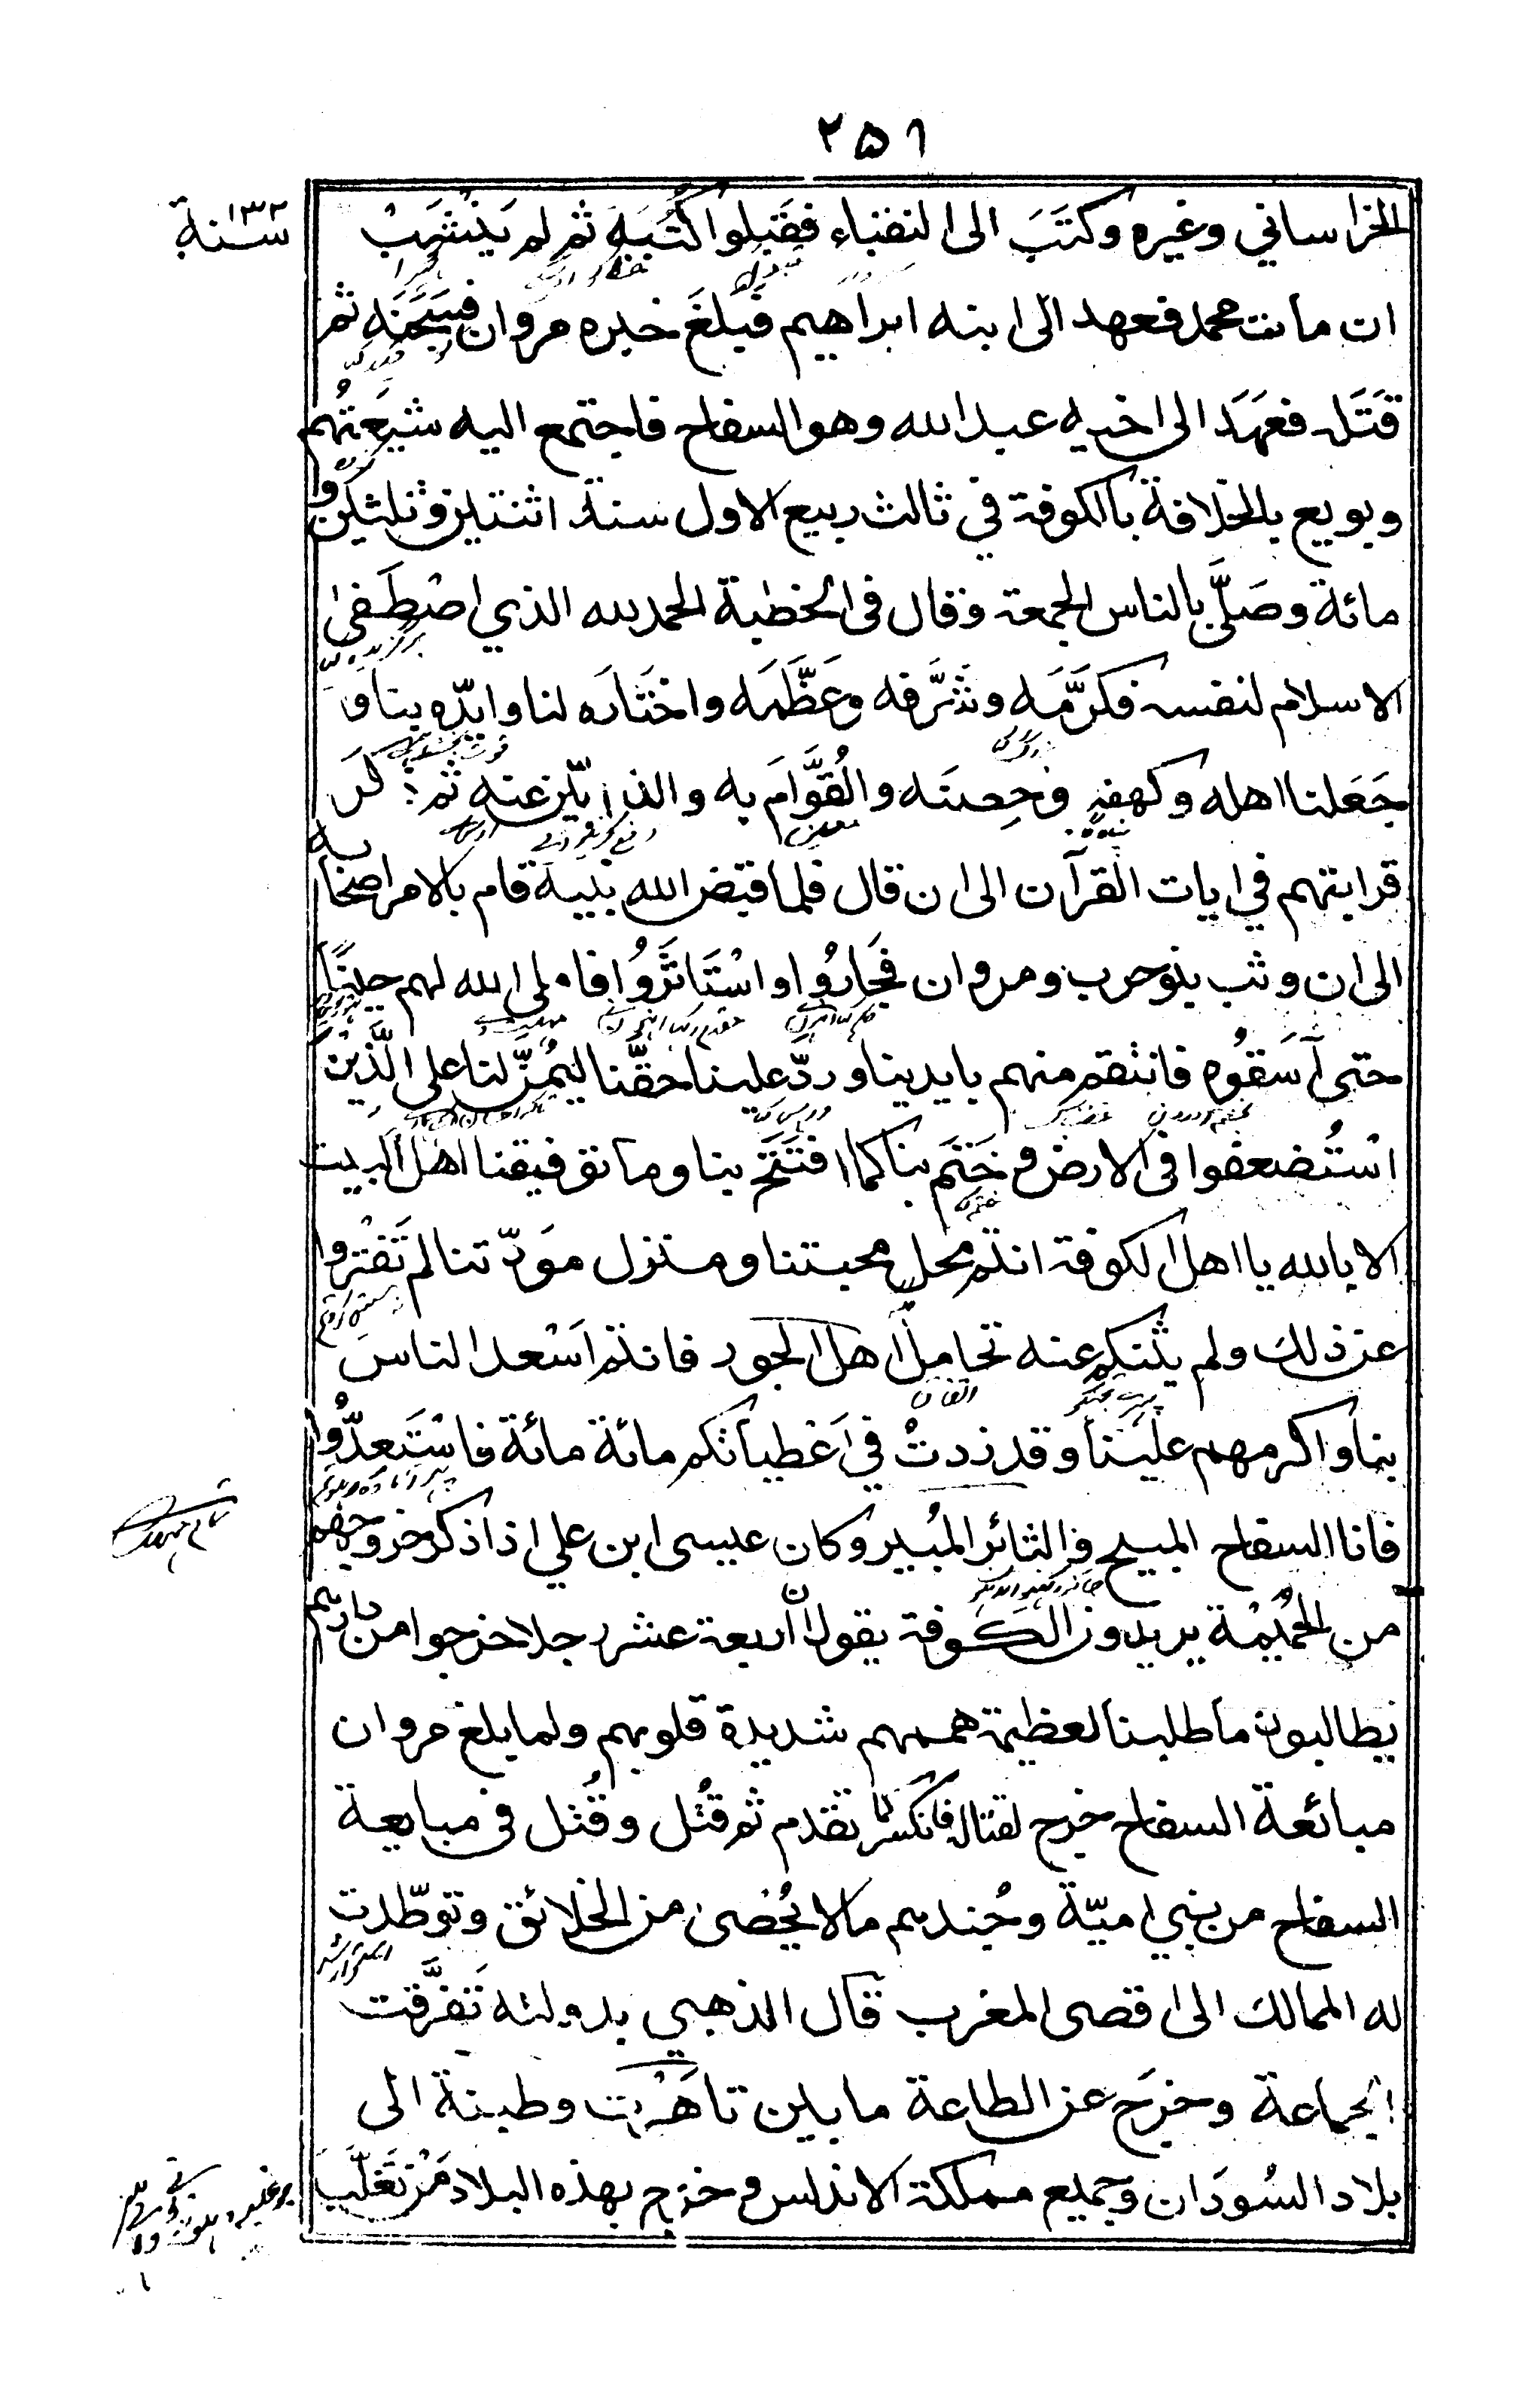 ٢٥١
سنة ١٣٢
الخراساني وغيره وكَتَبَ الى النقباء فقَبِلوا كُتُبَه ثم لم يَنْشَبْ
ان مات محمد فعهد الى ابنه ابراهيم فبلغَ خبره مروان فسَجَنَه ثم
قَتَله فعَهَدَ الى اخيه عبد الله وهو السفاح فاجتمع اليه شيْعَتُهم
وبويع بالخلافة بالكوفة في ثالث ربيع الاول سنة اثنتين وثلثين و
مائة وصَلَّى بالناس الجمعة وقال فى الخطبة الحمد لله الذي اصْطَفىٰ
الاسلام لنفسه فكَرَّمَه وشَرَّفه وعَظَّمَه واختَارَه لنا وايّده بنا و
جَعَلنا اهله وكهفه وحِصنَه والقُوَّامَ به والذابّين عنه ثم ذكر
قرابتهم في ايات القرآن الى ان قال فلما قبض الله نبيه قام بالامر اصحابه
الى ان وثب بنو حرب ومروان فجَارُوا واسْتَاثَرُوا فاملى الله لهم حِينًا
حتى آسَفُوه فانتقم منهم بايدينا وردّ علينا حقّنا ليَمُنَّ لنا على الَّذِيْنَ
اسْتُضعفوا فى الارض و خَتَم بنا كما افتَتَحَ بنا وما توفيقنا اهل البيت
الا بالله يا اهل الكوفة انتم محل محبتنا ومنزل موَدّتنا لم تَفْتروا
عن ذلك ولم يثنكم عنه تحامل اهل الجور فانتم اَسْعد الناس
بنا واكرمهم علينا وقد زدتُ في اَعْطياتكم مائة مائة فاسْتَعدُّوا
فانا السفاح المبيح والثائر المُبير وكان عيسى ابن علي اذا ذكر خروجهم
من الحُمَيْمة يريدون الكوفة يقول انّ اربعة عشر رجلا خرجوا من دارهم
يطالبون ما طلبنا لعظيمة هممهم شديدة قلوبهم ولما بلغ مروان
مبائعة السفاح خرج لقتاله فانكسر كما تقدم ثم قُتل وقُتل فى مبايعة
السفاح من بني اميّة وجُندهم ما لا يُحْصىٰ من الخلائق وتوطّدت
له الممالك الى اقصى المغرب قال الذهبي بدولته تَفَرَّقت
الجماعة وخرَج عن الطاعة ما بين تاهَرْت وطبنة الى
بلاد السُودَان وجميع مملكة الاندلس و خرج بهذه البلاد مَنْ تغَلَّبَ